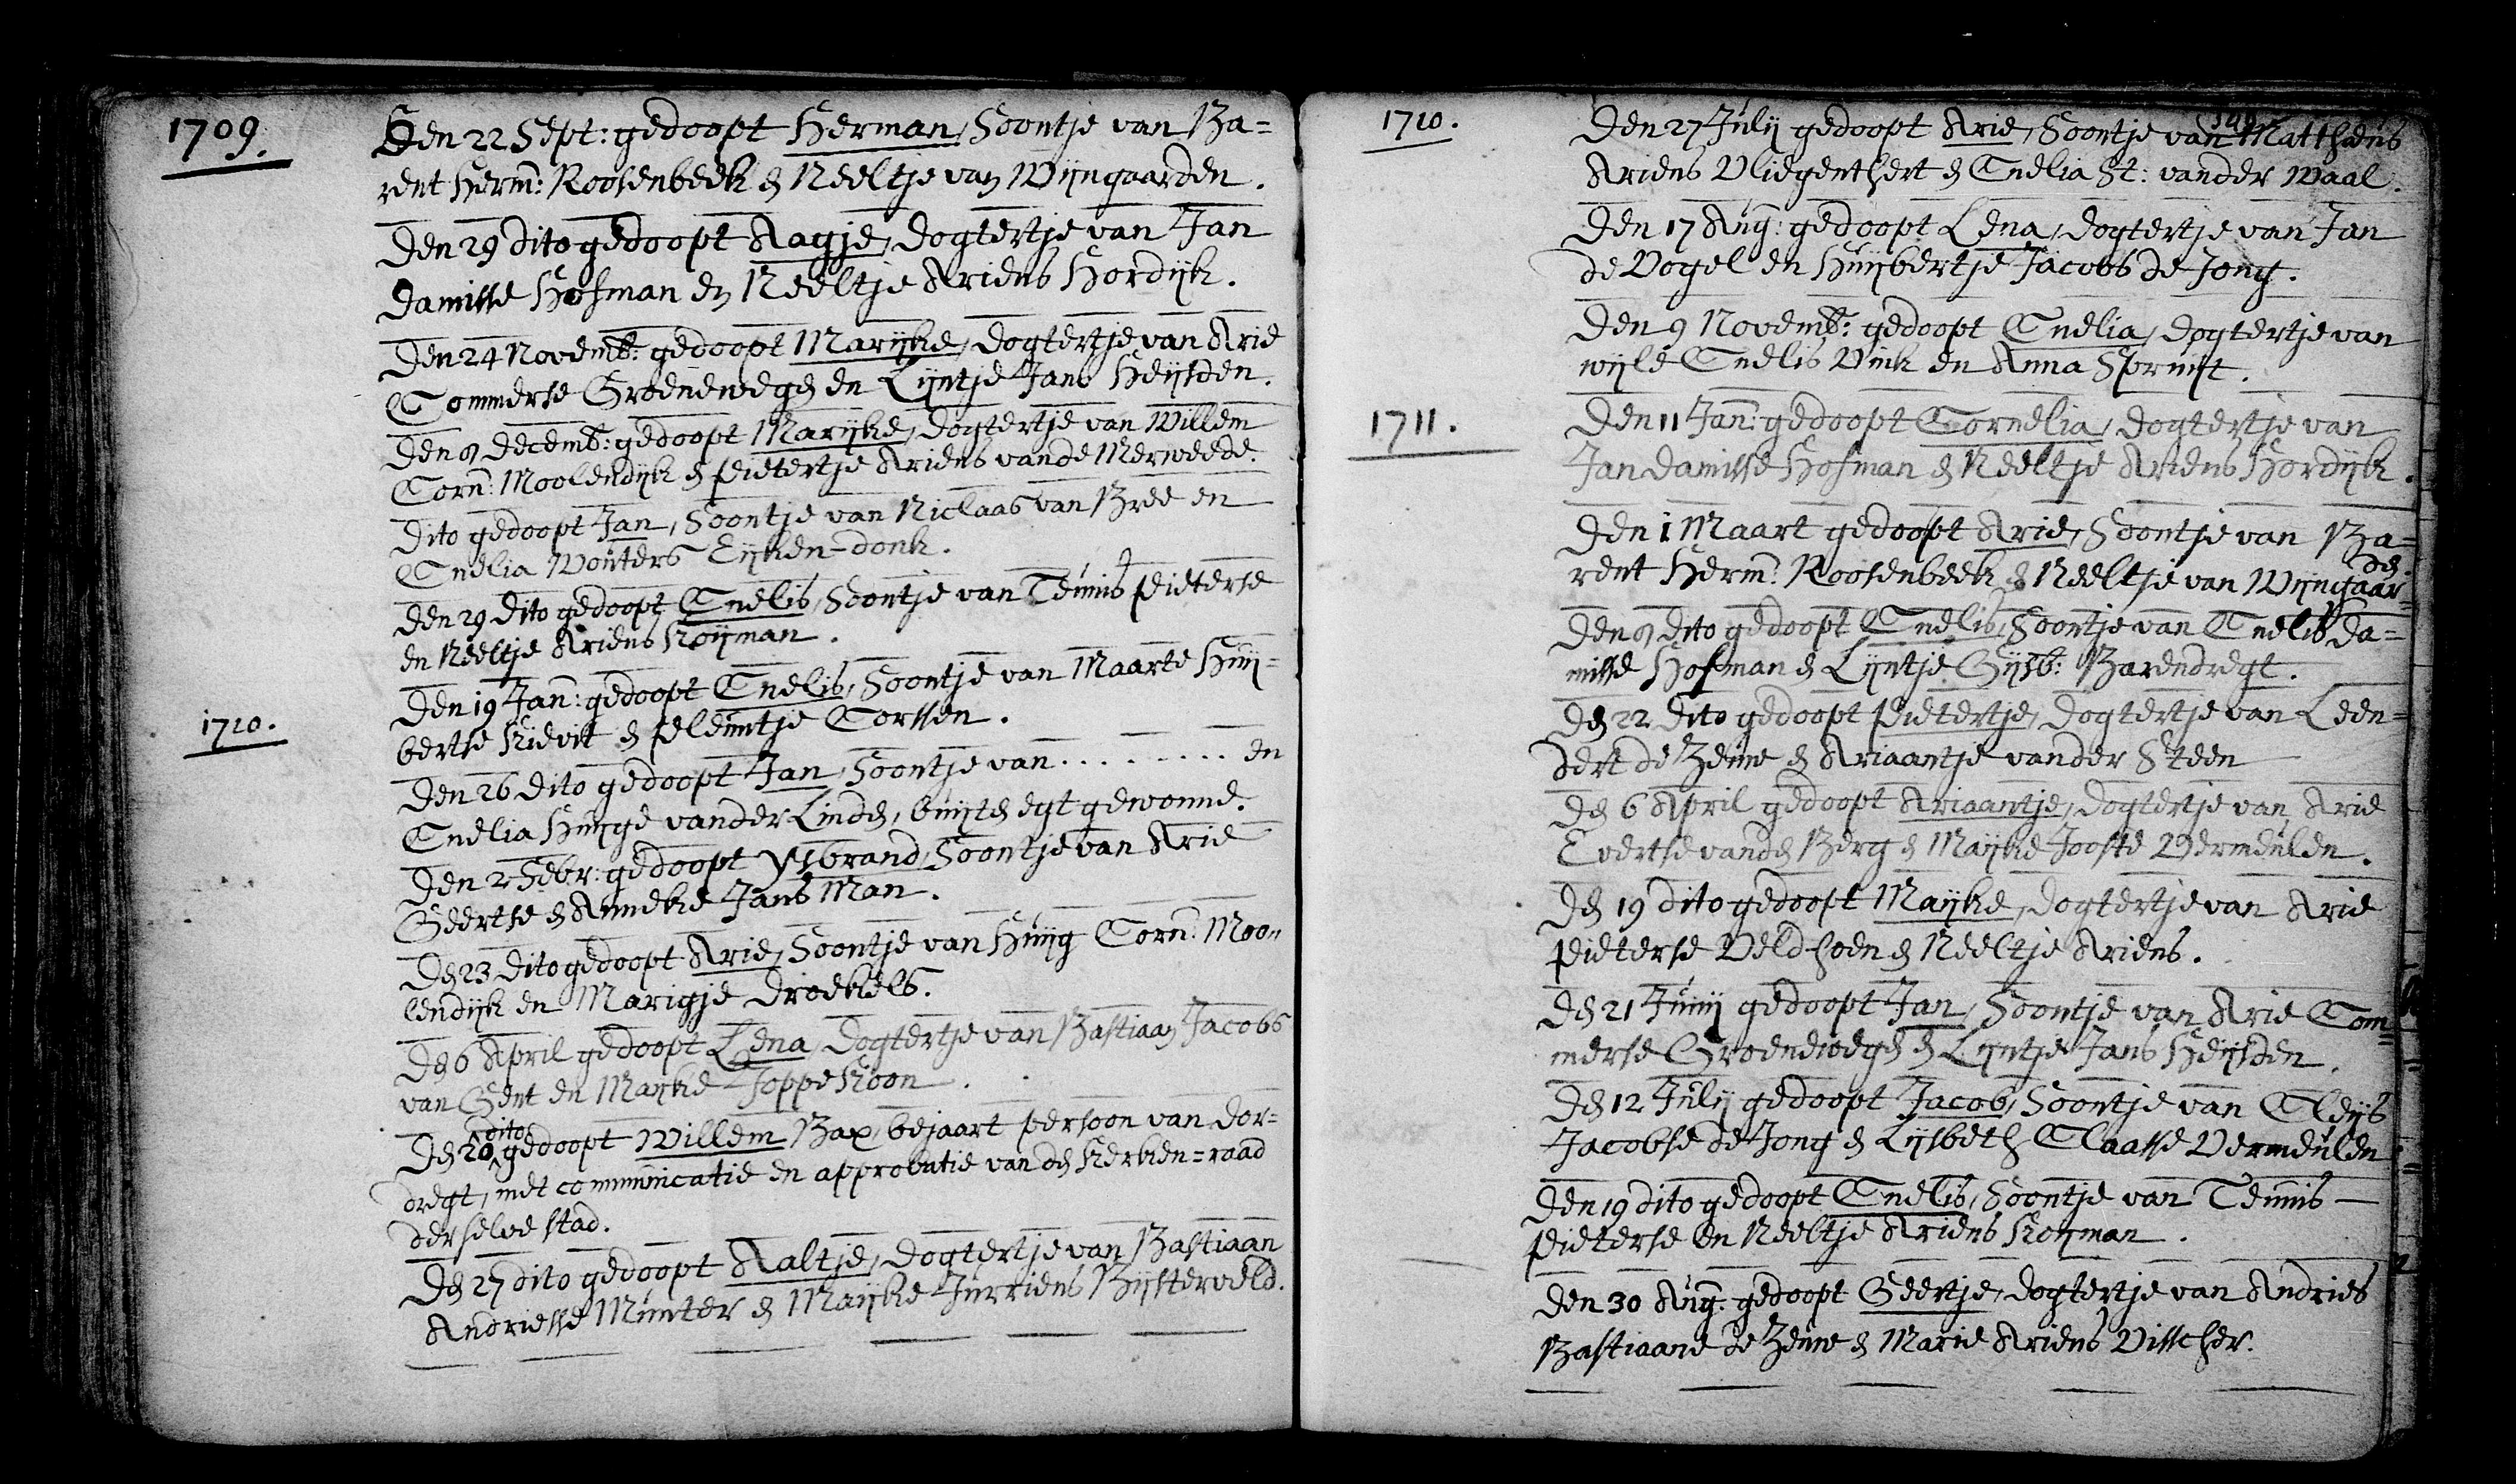 1709.
Den 22 Sept: gedoopt Herman, Soontje van Ba=
rent Herm: Roosenbeek en Neeltje van Wijngaarden.
Den 29 dito gedoopt Aagje, dogtertje van Jan
Damisse Hofman en Neeltje Ariens Hordijk.
Den 24 Novemb: gedoopt Marijke, dogtertje van Arie
Tommerse Groenewegen en Lijntje Jans Heijsden.
Den 9 Decemb: gedoopt Marijke, dogtertje van Willem
Corn: Moolendijk en Pietertje Ariens vande Merweede.
Dito gedoopt Jan, Soontje van Niclaas van Bree en
Cnelia Wouters Eijken-donk.
Den 29 dito gedoopt Cnelis, Soontje van Teunis Pieterse
en Neeltje Ariens Koijman.
1710.
Den 19 Jan: gedoopt Cnelis, Soontje van Maarte Huij=
bertse Kievit en Pleuntje Corssen.
Den 26 dito gedoopt Jan, Soontje van ......... en
Cnelia Huijge vander Linden, buijten egt gewonne.
Den 2 Febr: gedoopt Ysbrand, Soontje van Arie
Geertse en Anneke Jans Man.
Den 23 dito gedoopt Arie, Soontje van Huijg Corn: Moo=
lendijk en Marigje Droekels.
Den 6 April gedoopt Lena, dogtertje van Bastiaan Jacobs
van Gent en Marijke Joppe Koon.
Den 20 dito gedoopt Willem Bax, bejaart persoon van Dor=
dregt, met communicatie en approbatie van den Kerken=raad
derselve stad.
Den 27 dito gedoopt Aaltje, dogtertje van Bastiaan
Andriesse Munter en Maijke Jurriens Bijsterveld.
1710.
Den 27 Julij gedoopt Arie, Soontje van Mattheus
Ariens Vliegenthert en Cnelia St: vander Waal.
Den 17 Aug: gedoopt Lena, dogtertje van Jan
de Vogel en Huijbertje Jacobs de Jong.
Den 9 Novemb: gedoopt Cnelia, dogtertje van
wijle Cnelis Vink en Anna Spruijt.
1711.
Den 11 Jan: gedoopt Cornelia, dogtertje van
Jan Damisse Hofman en Neeltje Ariens Hordijk.
Den 1 Maart gedoopt Arie, Soontje van Ba=
rent Herm: Roosenbeek en Neeltje van Wijngaar=
den.
Den 9 dito gedoopt Cnelis, Soontje van Cnelis Da=
misse Hofman en Lijntje Gijsb: Barendregt.
Den 22 dito gedoopt Pietertje, dogtertje van Leen=
dert de Zeuw en Ariaantje vander Steen
Den 6 April gedoopt Ariaantje, dogtertje van Arie
Evertse vanden Berg en Maijke Jooste Vermeulen.
Den 19 dito gedoopt Maijke, dogtertje van Arie
Pieterse Veldhoen en Neeltje Ariens.
Den 21 Junij gedoopt Jan, Soontje van Arie Tom=
merse Groenewegen en Lijntje Jans Heijsden.
Den 12 Julij gedoopt Jacob, Soontje van Cleijs
Jacobse de Jong en Lijsbeth Claasse Vermeulen
Den 19 dito gedoopt Cnelis, Soontje van Teunis
Pieterse en Neeltje Ariens Koijman.
Den 30 Aug: gedoopt Geertje, dogtertje van Andries
Bastiaane de Zeuw en Marie Ariens Visscher.